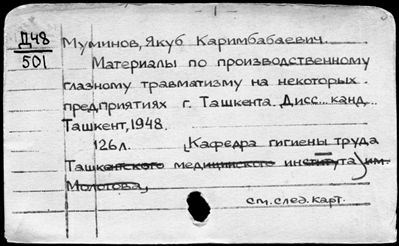 Д48
501
Муминов, Якуб Каримбабаевич.
Материалы по производственному
глазному травматизму на некоторых
предприятиях г. Ташкента. Дисс... канд...
Ташкент, 1948.
126л. (Кафедра гигиены труда
Ташкентского медицинского института) им.
Молотова,
см. след. карт.